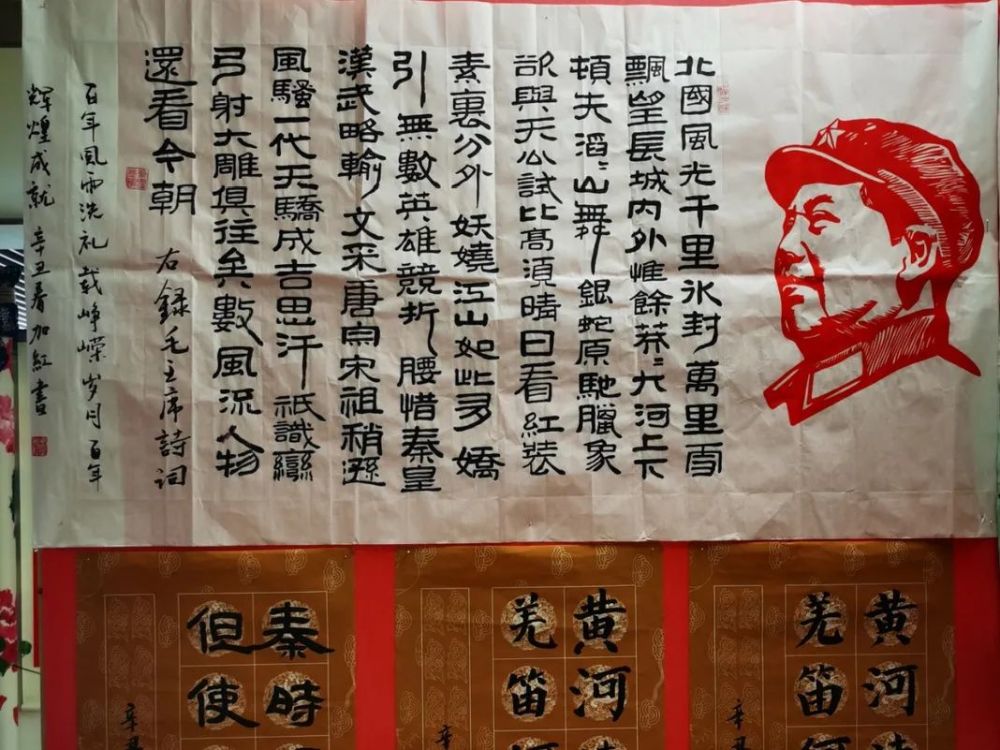 北國風光千里冰封萬里雪
飄望長城內外惟餘莽〻大河上下
頓失滔〻山舞銀蛇原馳臘象
欲與天公試比高須晴日看紅裝
素裹分外妖嬈江山如此多嬌
引無數英雄競折腰惜秦皇
漢武略輸文采唐宗宋祖稍遜
風騷一代天驕成吉思汗祇識彎
弓射大雕俱往矣數風流人物
還看今朝
右録毛主席詩词
百年風雨洗礼载峥嵘岁月百年
辉煌成就 辛丑春加紅書
黄河
羌笛
辛
黄河
羌笛
辛
秦時
但使
辛丑